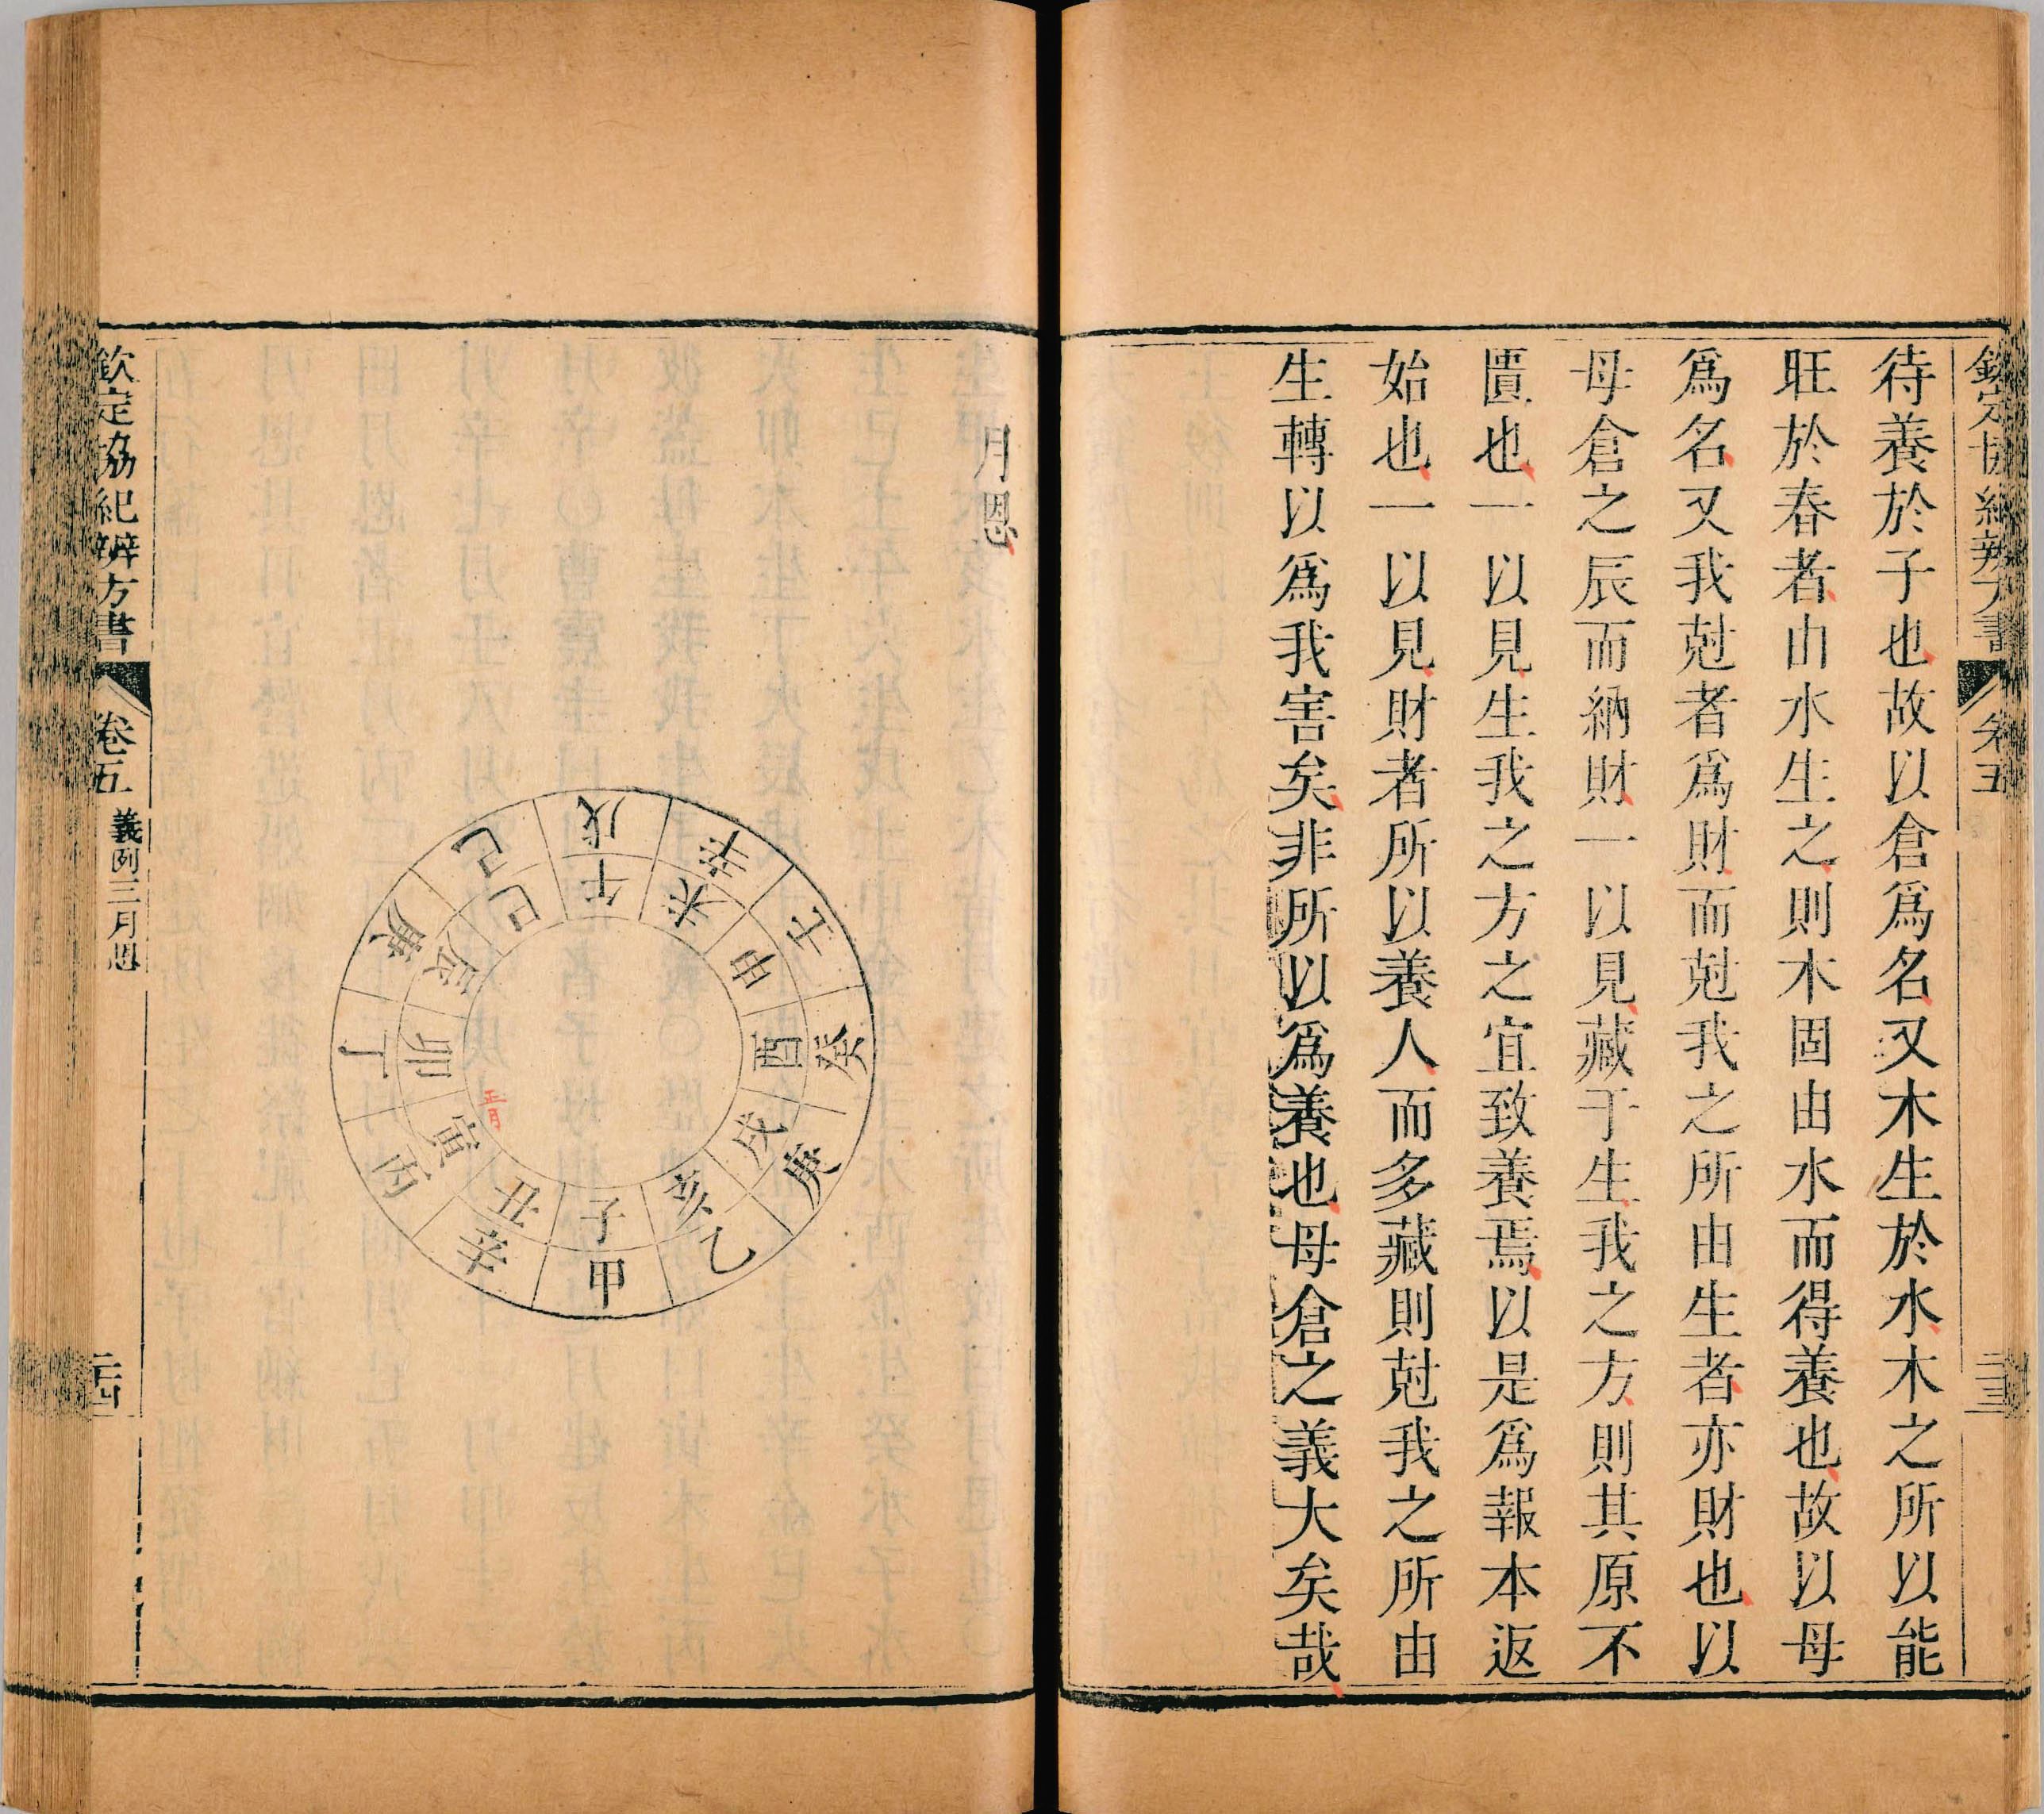 欽定協紀辨方書 卷五 二十三
待養於子也故以倉爲名又木生於水木之所以能
旺於春者由水生之則木固由水而得養也故以母
爲名又我尅者爲財而尅我之所由生者亦財也以
母倉之辰而納財一以見藏于生我之方則其原不
匱也一以見生我之方之宜致養焉以是爲報本返
始也一以見財者所以養人而多藏則尅我之所由
生轉以爲我害矣非所以爲養也母倉之義大矣哉
月恩
戊 辛 壬 癸 庚 乙 甲 辛 丙 丁 庚 己
午 未 申 酉 戌 亥 子 丑 寅 卯 辰 巳
正月
欽定協紀辨方書 卷五 義例三月恩 二十四